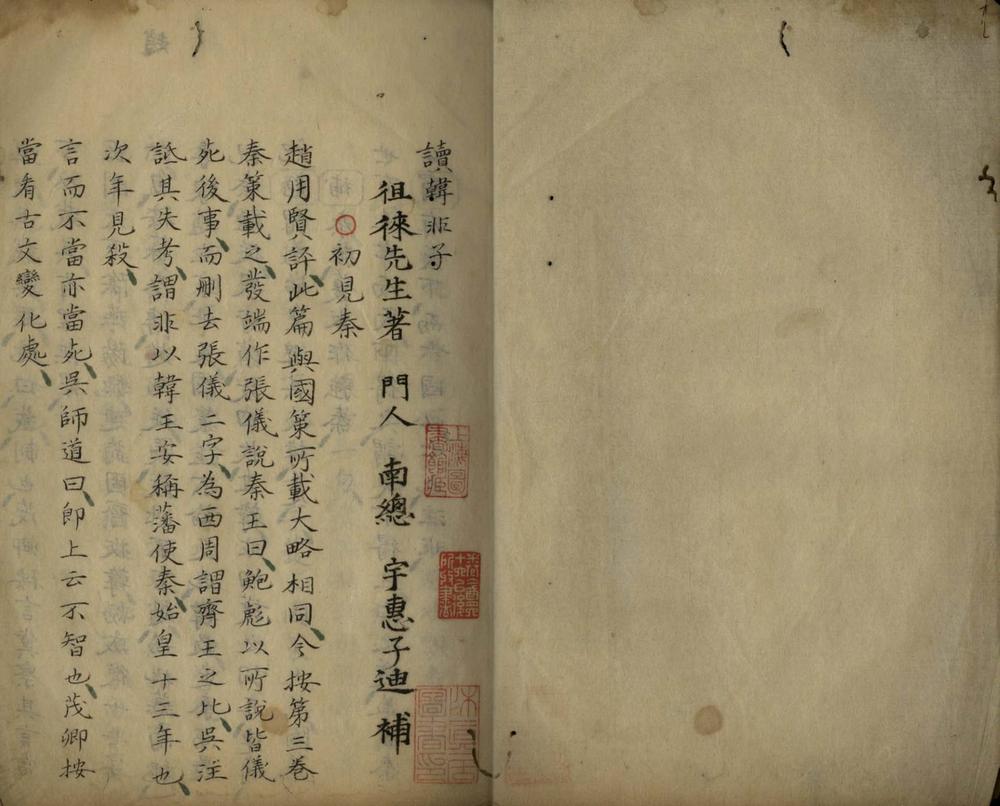 讀韓非子
徂徠先生著 門人 南總 宇惠子迪 補
○初見秦
趙用賢評此篇與國策所載大略相同今按第三卷
秦策載之發端作張儀說秦王曰鮑彪以所說皆儀
死後事而刪去張儀二字為西周謂齊王之比吳注
詆其失考謂非以韓王安稱藩使秦始皇十三年也
次年見殺
言而不當亦當死吳師道曰即上云不智也茂卿按
當看古文變化處
上海圖書館藏